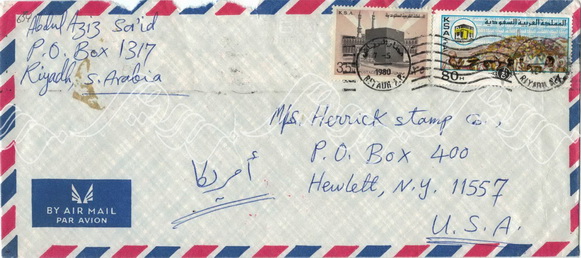 Abdul Aziz Sa'id
P.O. Box 1317
Riyadh, S. Arabia
K.S.A.
المملكة العربية السعودية
K.S.A.
80H
1980
RIYADH
M/s. Herrick Stamp Co.,
P.O. Box 400
Hewlett, N.Y. 11557
U.S.A.
أمريكا
BY AIR MAIL
PAR AVION